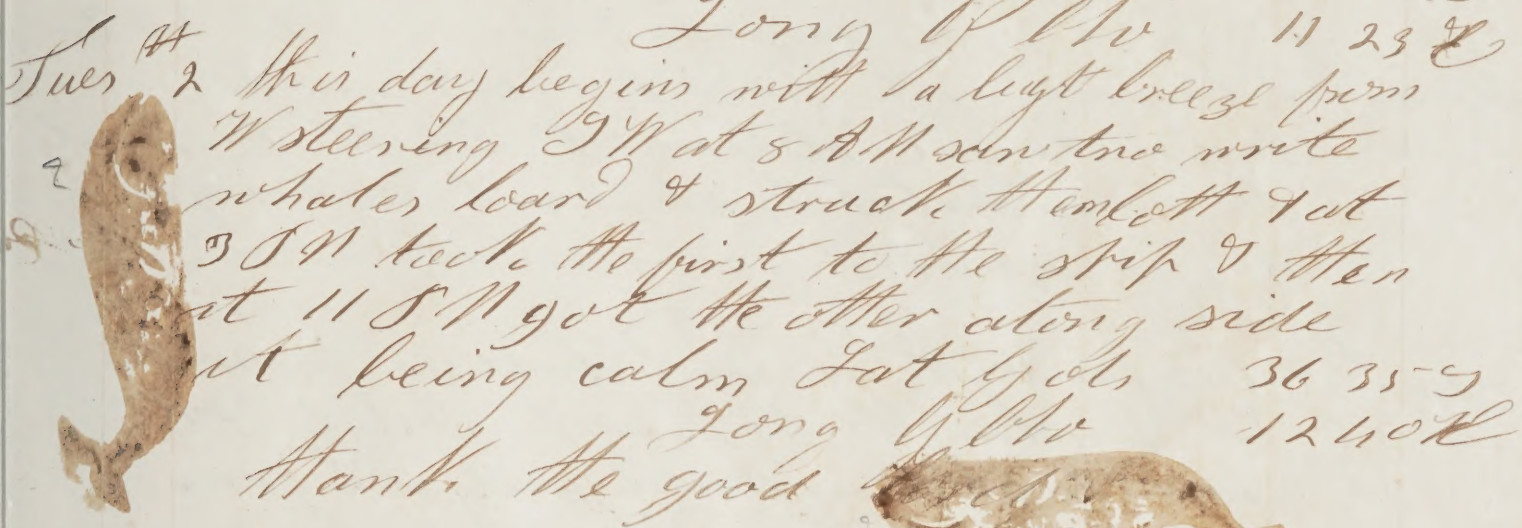 Long By Chro 11 23 E
Tues th 2 this day begins with a light breeze from
W steering SW at 8 AM saw two write
whales loard & struck them both & at
3 PM took the first to the ship & then
at 11 PM got the other along side
it being calm Lat By obs 36 35 S
Long By Chro 12 40 E
thank the good